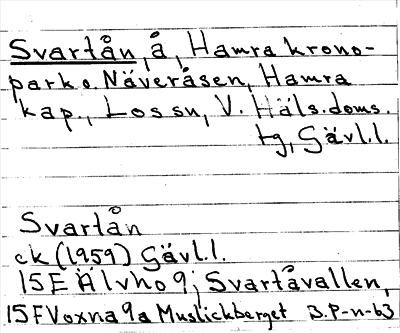 Svartån, å, Hamra krono-
park o. Näveråsen, Hamra
kap., Los sn, V. Häls. doms.
tg, Gävl. l.
Svartån
ek (1959) Gävl. l.
15E Älvho 9j Svartåvallen,
15F Voxna 9a Muslickberget B.P-n-63